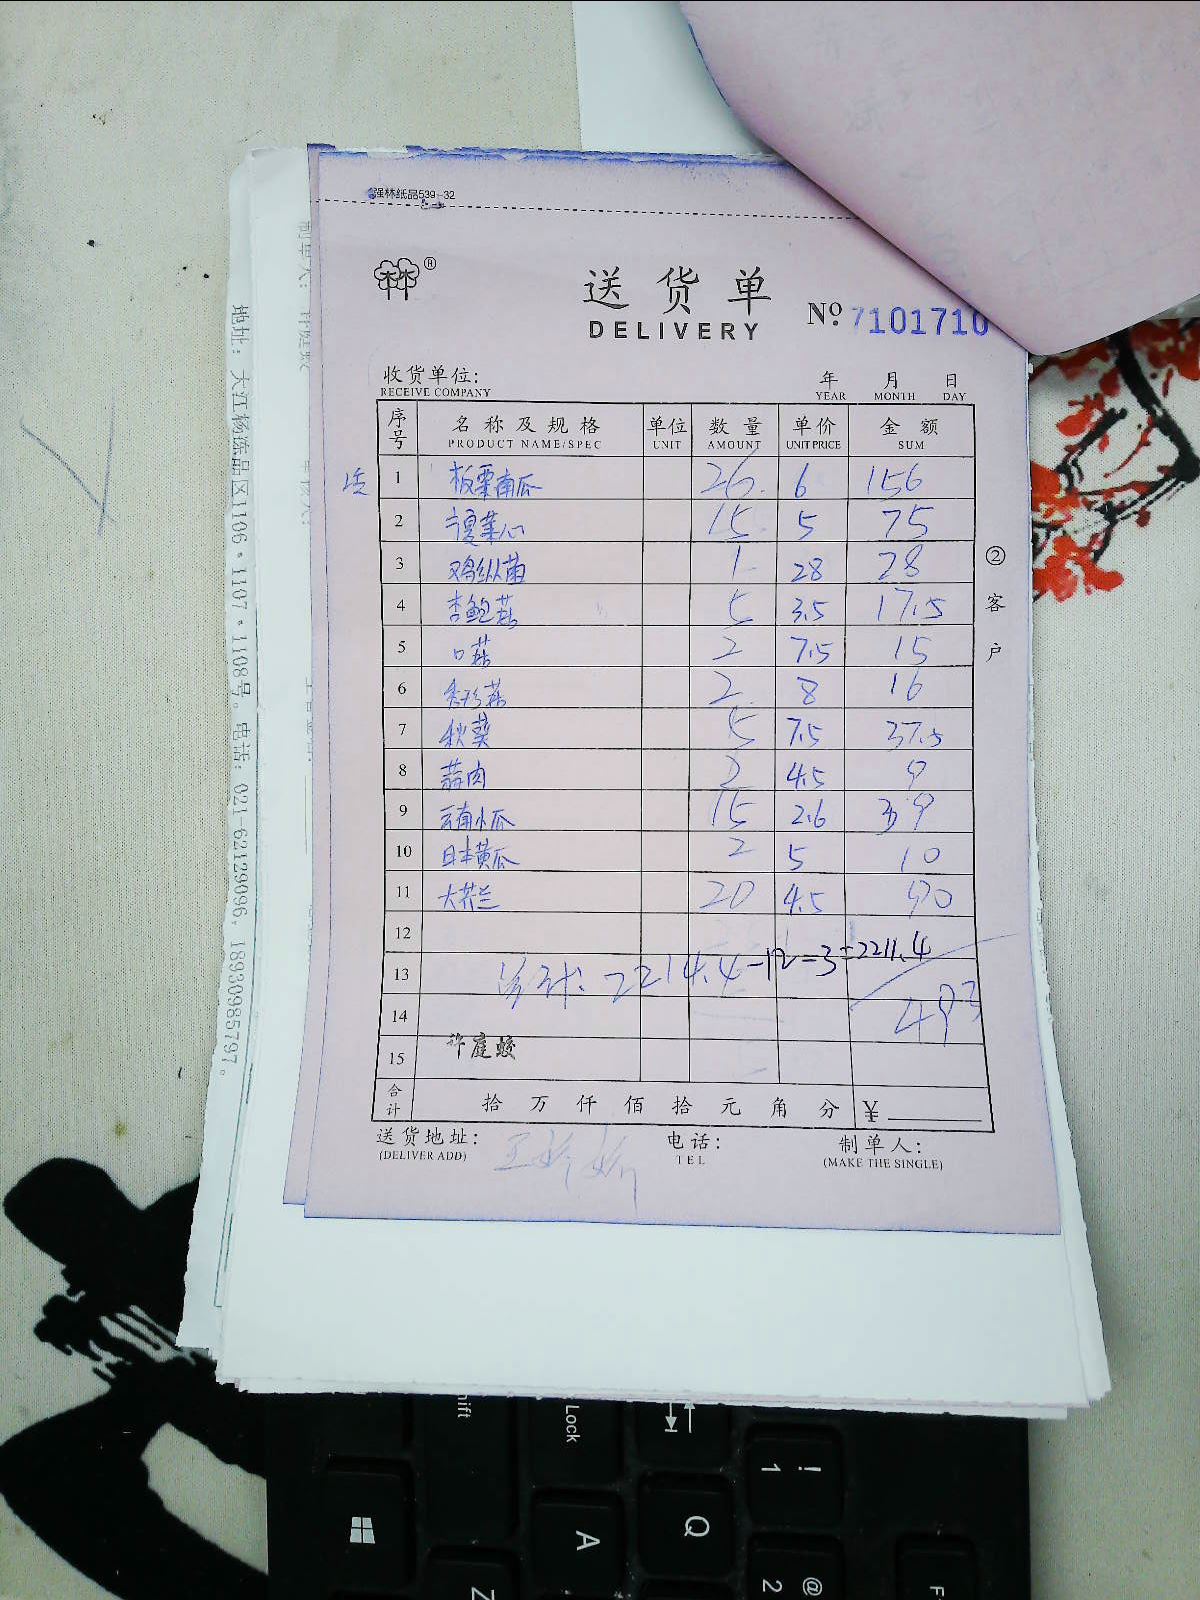 强林纸品539-32
送货单
DELIVERY
№ 7101710
收货单位:
RECEIVE COMPANY
年 月 日
YEAR MONTH DAY
序号 名称及规格 单位 数量 单价 金额
PRODUCT NAME/SPEC UNIT AMOUNT UNIT PRICE SUM
1 板栗南瓜 26 6 156
2 宁夏菜心 15 5 75
3 鸡枞菌 1 28 28
4 杏鲍菇 5 3.5 17.5
5 口菇 2 7.5 15
6 秀珍菇 2 8 16
7 秋葵 5 7.5 37.5
8 蒜肉 2 4.5 9
9 云南小瓜 15 2.6 39
10 日本黄瓜 2 5 10
11 大芥兰 20 4.5 90
12
13 总计: 2214.4-12-3=2211.4
14 493
15 许庭蛟
合计 拾 万 仟 佰 拾 元 角 分 ¥
送货地址: 电话: 制单人:
(DELIVER ADD) TEL (MAKE THE SINGLE)
②客户
地址: 大江杨练品区1106·1107·1108号。电话: 021-62129096, 18930985797。
Lock
A
Q
!
1
@
2
Z
F